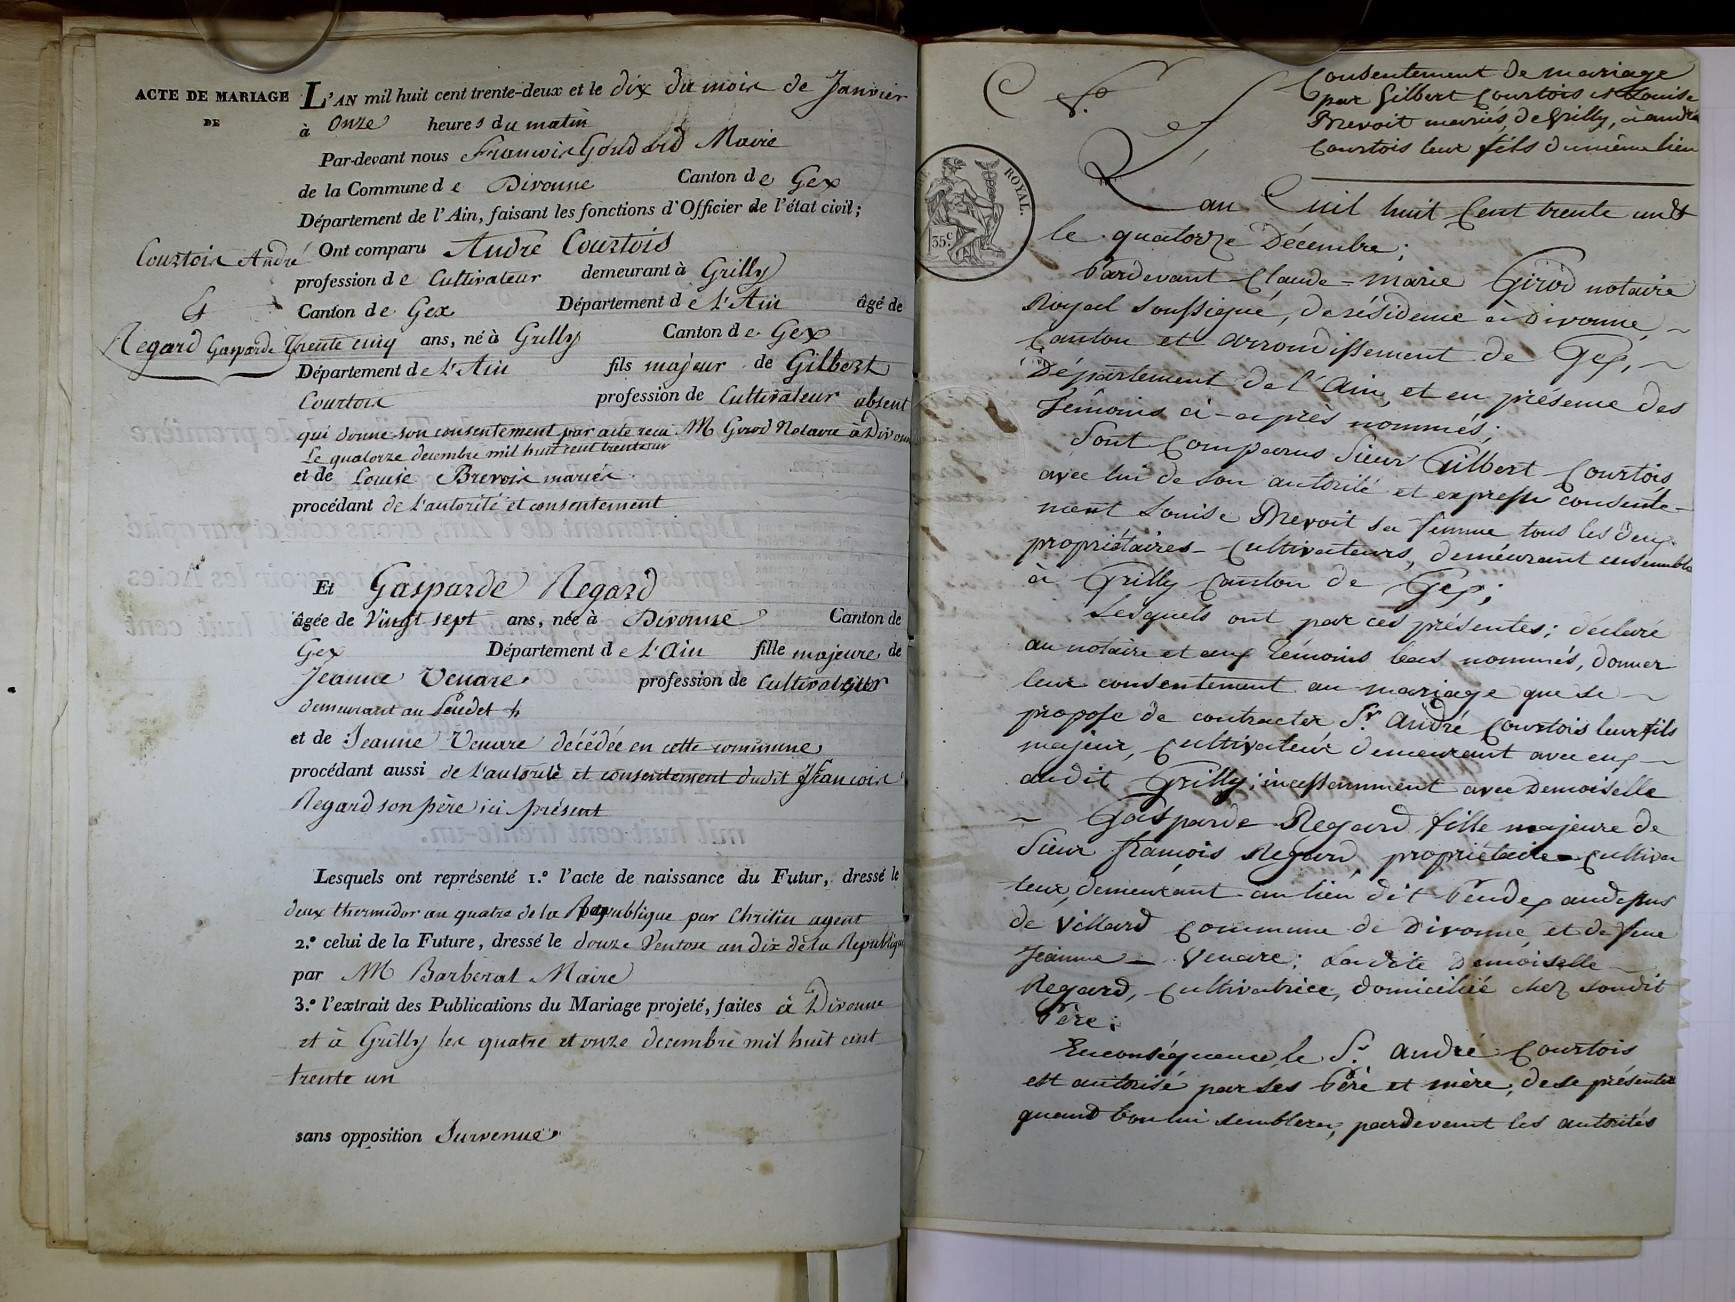 ACTE DE MARIAGE
DE
Courtois André
&
Regard Gasparde
L'AN mil huit cent trente-deux et le dix du mois de Janvier
à onze heures du matin
Par-devant nous François Goudard Maire
de la Commune de Divonne Canton de Gex
Département de l'Ain, faisant les fonctions d'Officier de l'état civil;
Ont comparu André Courtois
profession de Cultivateur demeurant à Grilly
Canton de Gex Département de l'Ain âgé de
Trente cinq ans, né à Grilly Canton de Gex
Département de l'Ain fils majeur de Gilbert
Courtois profession de Cultivateur absent
qui donne son consentement par acte recu M Girod Notaire à Divonne
Le quatorze decembre mil huit cent trente un
et de Louise Brevoix mariés
procédant de l'autorité et consentement
Et Gasparde Regard
âgée de Vingt sept ans, née à Divonne Canton de
Gex Département de l'Ain fille majeure de
Jeanne Venare profession de Cultivateur
demeurant au
et de Jeanne Venare décédée en cette commune
procédant aussi de l'autorité et consentement dudit François
Regard son père ici présent
Lesquels ont représenté 1.º l'acte de naissance du Futur, dressé le
deux thermidor an quatre de la République par Chritin agent
2.º celui de la Future, dressé le douze Ventose an dix de la République
par M Barberat Maire
3.º l'extrait des Publications du Mariage projeté, faites à Divonne
et à Grilly les quatre et onze decembre mil huit cent
trente un
sans opposition Survenue
Consentement de mariage
par Gilbert Courtois et Louise
Brevoit mariés de Grilly, à andré
Courtois leur fils du même lieu
ROYAL.
35 C
L'an mil huit Cent trente un &
le quatorze Décembre;
Pardevant Claude-Marie Girod notaire
Royal Soussigné, de résidence à Divonne
Canton et arrondissement de Gex,
Département de l'Ain, et en présence des
témoins ci-après nommés;
Sont comparus Sieur Gilbert Courtois
avec lui de son autorité et exprès consente-
ment Louise Brevoit sa femme tous les deux
propriétaires-cultivateurs, demeurant ensemble
à Grilly Canton de Gex;
Lesquels ont par ces présentes; déclaré
au notaire et aux témoins bas nommés, donner
leur consentement au mariage que se
propose de contracter Sr. André Courtois leur fils
majeur, cultivateur demeurant avec eux
audit Grilly; incessamment avec Demoiselle
Gasparde Regard fille majeure de
Sieur françois Regard propriétaire cultiva
teur, demeurant au lieu dit audessus
de Villard commune de Divonne et de feue
Jeanne Venare; Ladite Demoiselle
Regard, cultivatrice, domiciliée chez soudit
Père;
En conséquence, le Sr. André Courtois
est autorisé par ses Père et mère, de se présenter
quand bon lui semblera, pardevant les autorités